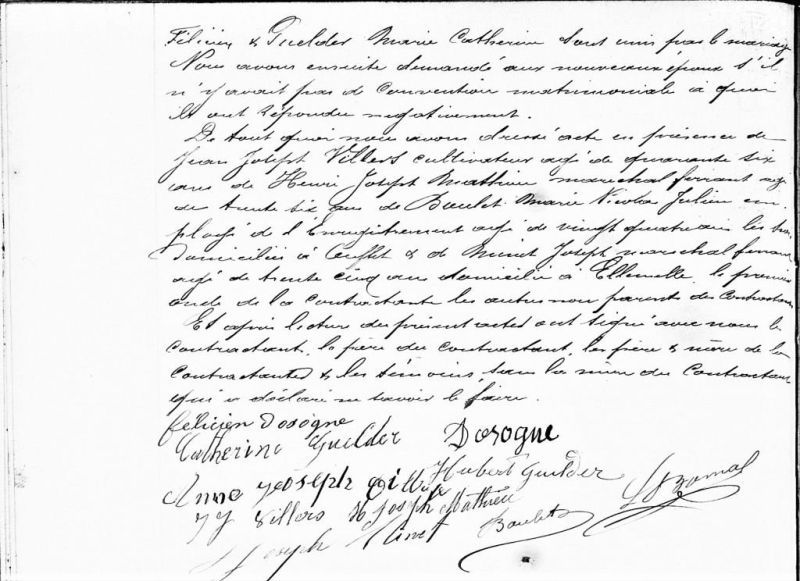 Félicien & Guelder Marie Catherine sont unis par le mariage
Nous avons ensuite demandé aux nouveaux époux s'il
n'y avait pas de convention matrimoniale à quoi
ils ont répondu négativement.
De tout quoi nous avons dressé acte en présence de
Jean Joseph Villers cultivateur agé de quarante six
ans de Henri Joseph Mathieu maréchal ferrant agé
de trente six ans de Boulet Marie Nicolas Julien em-
ployé de l'Enregistrement agé de vingt quatre ans les trois
domiciliés à & de Minet Joseph marechal ferrant
agé de trente cinq ans domicilié à Ellemelle, le premier
oncle de la contractante les autres non parents des contractants
Et après lecture du présent acte ont signé avec nous le
contractant, le père du contractant, les père & mère de la
contractante & les témoins, sauf la mère du contractant
qui a déclaré ne savoir le faire.
felicien Dosogne
Catherine Guelder Dosogne
Anne Joseph Hubert Guelder
JJ Villers H Joseph Mathieu
Joseph Minet Boulet